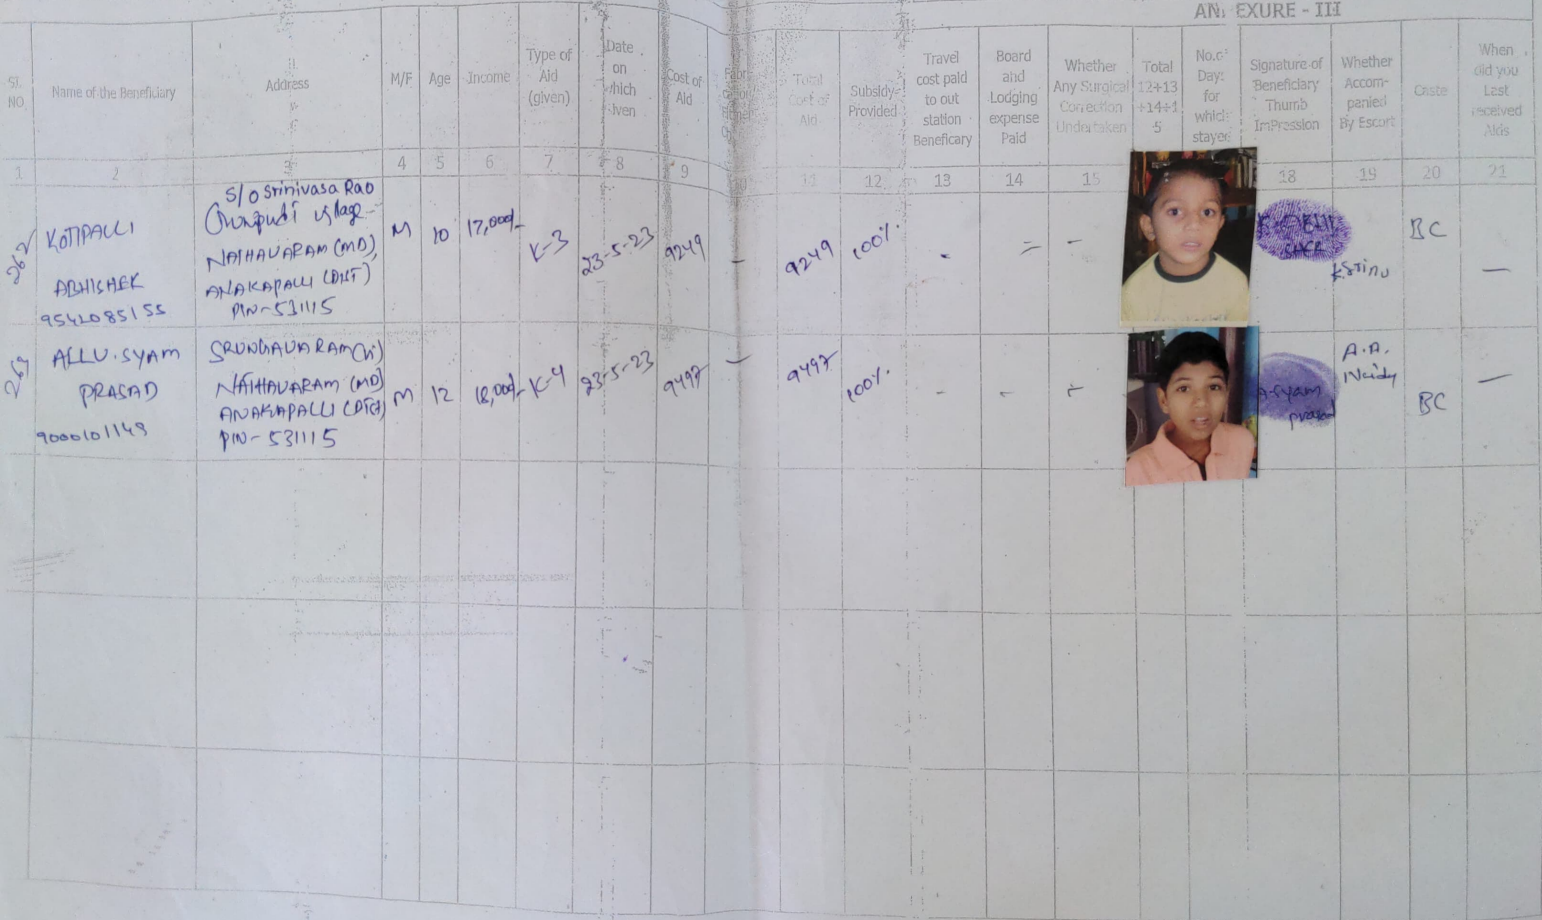 ANNEXURE - III
Sl. NO
Name of the Beneficiary
Address
M/F
Age
Income
Type of
Aid
(given)
Date
on
which
given
Cost of
Aid
Total
Cost of
Aid
Subsidy
Provided
Travel
cost paid
to out
station
Beneficary
Board
and
Lodging
expense
Paid
Whether
Any Surgical
Correction
Undertaken
Total
12+13
+14+1
5
for
which
stayed
Signature of
Beneficiary
Thumb
ImPression
Whether
Accom-
panied
By Escort
Caste
When
did you
Last
received
Aids
1 2 3 4 5 6 7 8 9 11 12 13 14 15 18 19 20 21
262
KOTIPALLI
ABHISHEK
9542085155
S/O Srinivasa Rao
village
NATHAVARAM (MD),
ANAKAPALLI (DIST)
PIN-531115
M
10
17,000/-
K-3
23-5-23
9249
-
9249
100%
-
=
-
K. ABHI
SHEK
K Srinu
BC
-
263
ALLU.SYAM
PRASAD
9000101149
SRUNGAVARAM (V)
NATHAVARAM (MD)
ANAKAPALLI (DIST)
PIN-531115
M
12
18,000/-
K-4
23-5-23
9497
-
9497
100%
-
-
-
A.Syam
prasad
A.A.
Naidu
BC
-